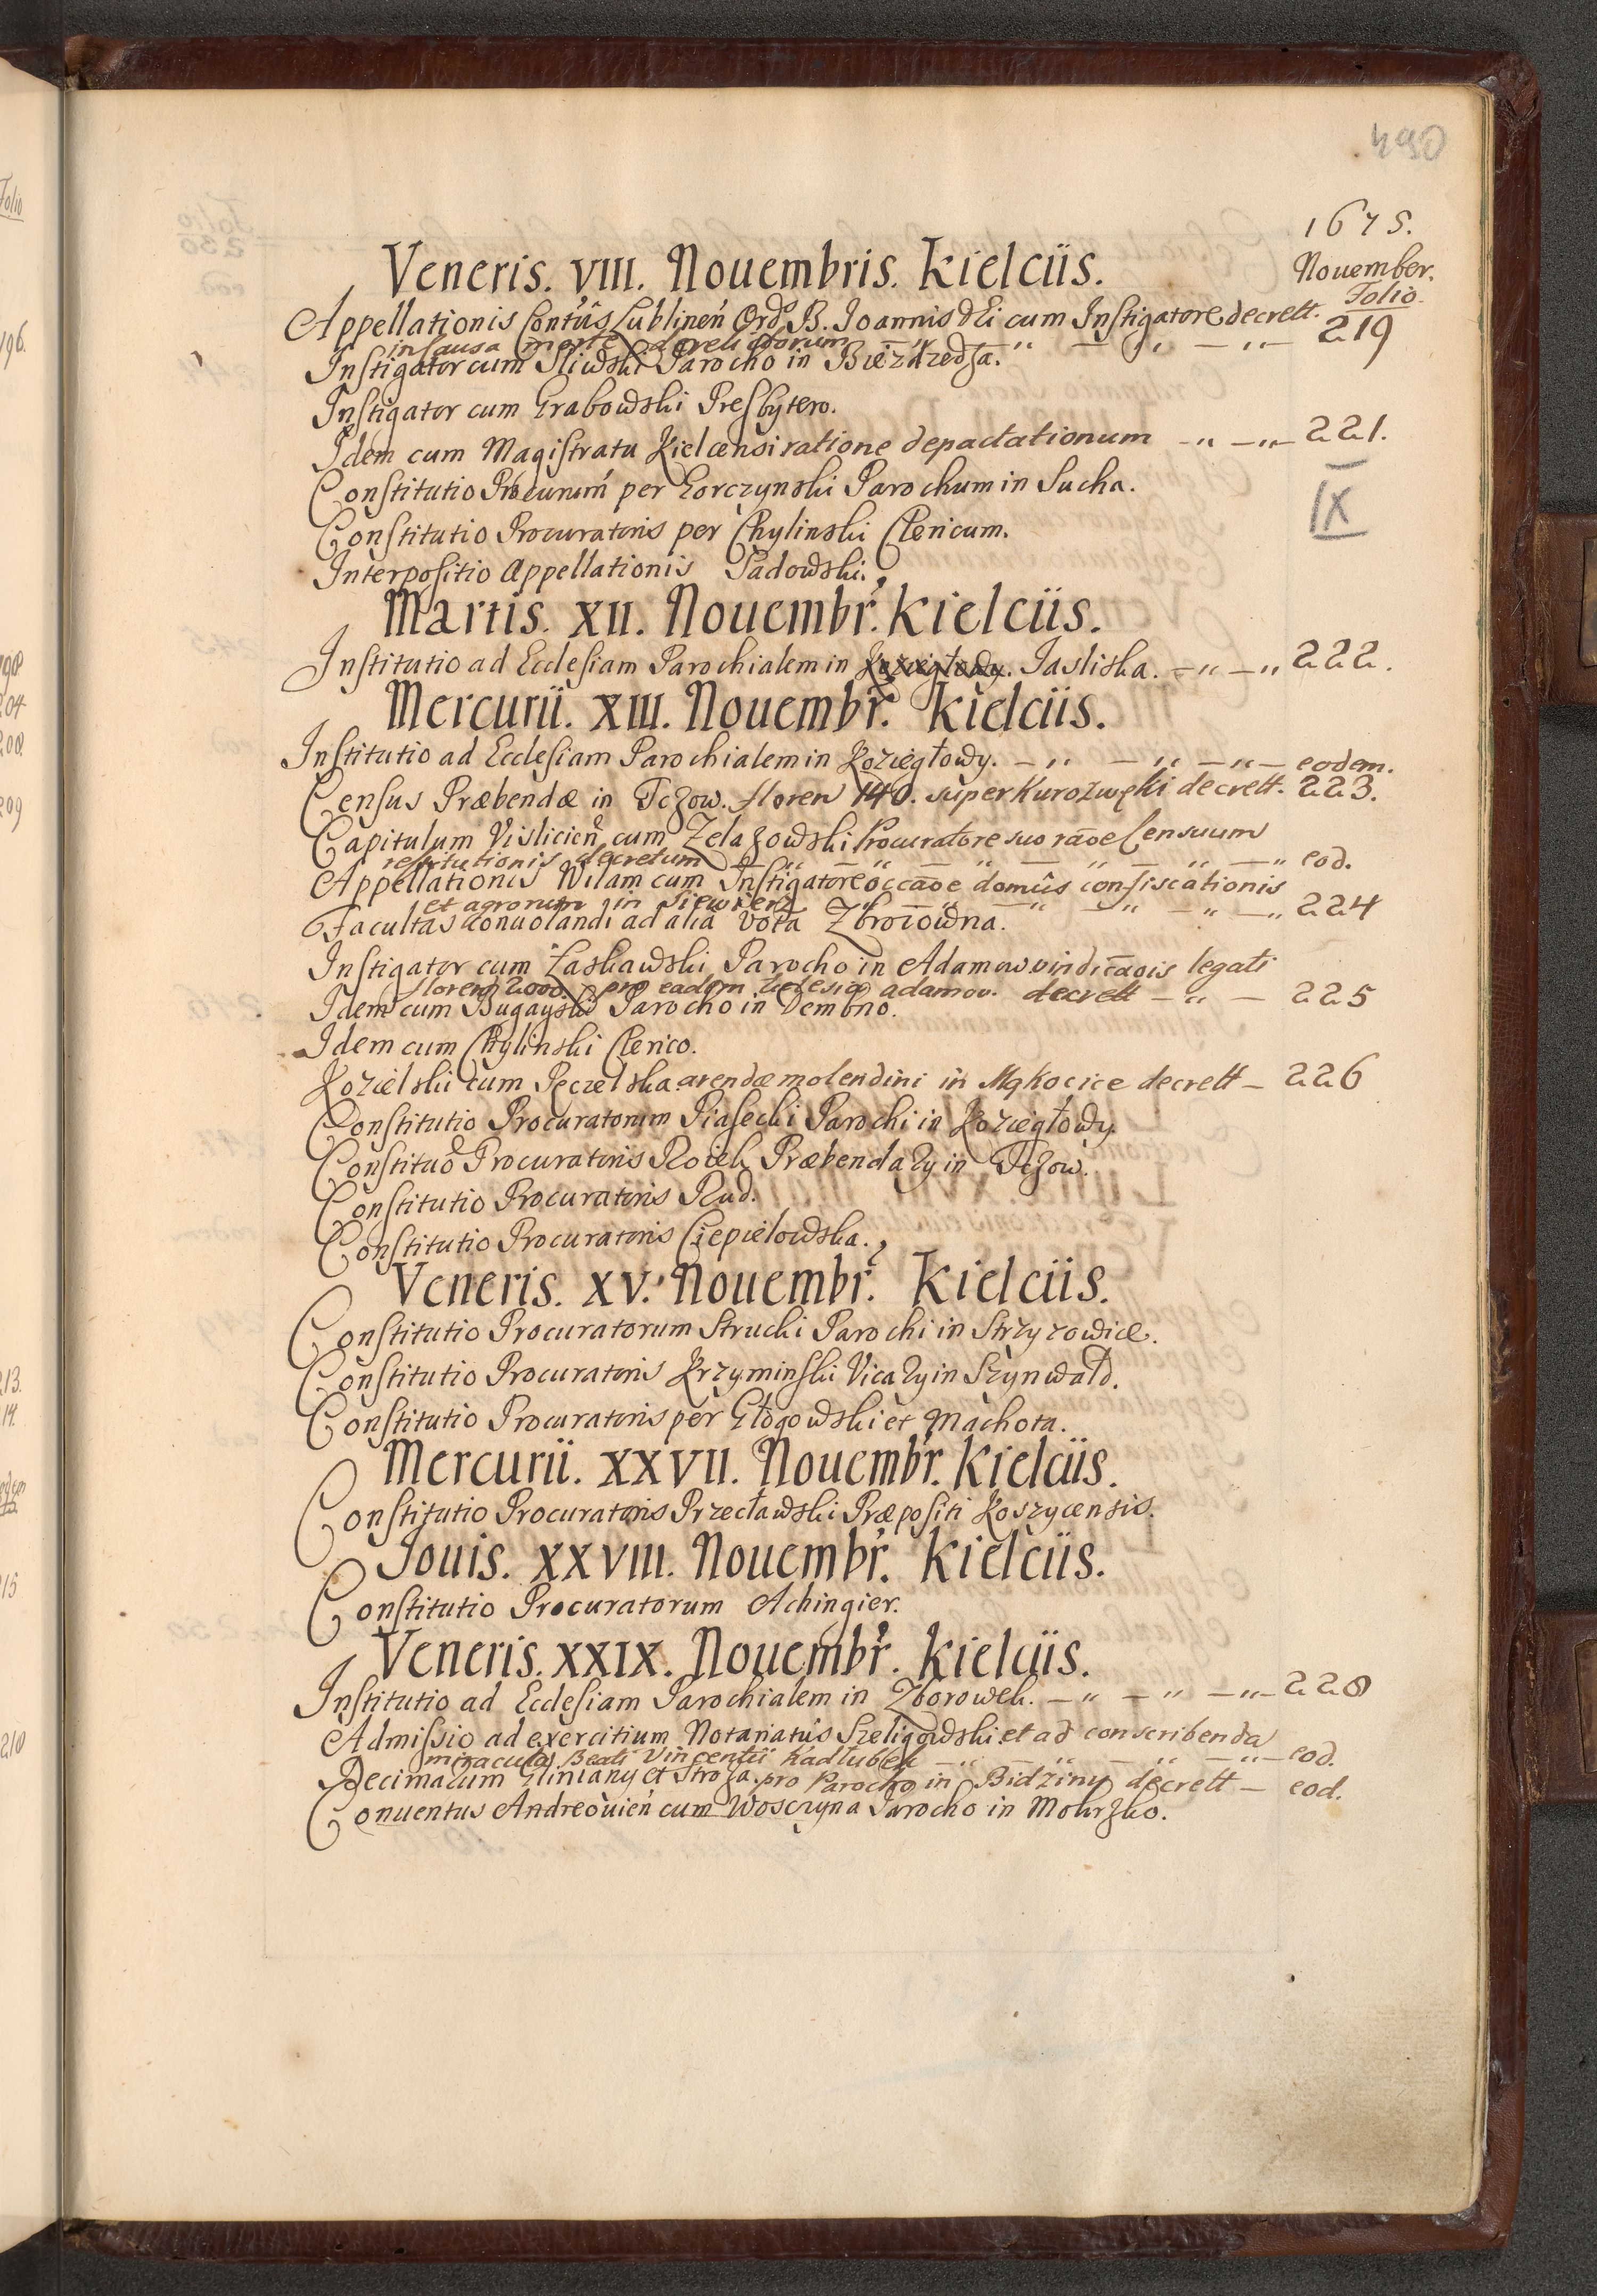 490
1675.
Nouember.
Folio
Veneris. VIII. Nouembris. Kielciis.
Appellationis Contûs Lublineń Ord. B. Joannis dEi cum Instigatore decrett.
in causa morte derelictorum — " — " — " — 219
Instigator cum Sliwski Parocho in Biezdzedza.
Instigator cum Grabowski Presbytero.
Idem cum Magistratu Kielcensi ratione depactationum — " — " — 221.
Constitutio Procurum per Gorczynski Parochum in Sucha.
IX
Constitutio Procuratoris per Chylinski Clericum.
Interpositio Appellationis Sadowski.
Martis. XII. Nouembr. Kielciis.
Institutio ad Ecclesiam Parochialem in Koziegłowy. Jasliska. — " — " 222.
Mercurii. XIII. Nouembr. Kielciis.
Institutio ad Ecclesiam Parochialem in Koziegłowy. — " — " — " — eodem.
Census Præbendæ in Tczow. floren 140. super Kurozwęki decrett. 223.
Capitulum Vislicień cum Zelazowski Procuratore suo rãoe Censuum
restitutionis decretum — " — " — " — " — " — " eod.
Appellationis Wilam cum Instigatore occãoe domûs confiscationis
et agrorum in Siewierz — " — " — " — " — " 224
Facultas conuolandi ad alia vota Zbrozowna.
Instigator cum Łaskawski Parocho in Adamow vindicãois legati
floren 2000. pro eadem Ecclesia adamov. decrett — " — 225
Idem cum Bugayski Parocho in Dembno.
Idem cum Chylinski Clerico.
Kozielski cum Peczelska arendæ molendini in Mąkocice decrett — 226
Constitutio Procuratorum Piasecki Parochi in Koziegłowy.
Constituo Procuratoris Roiek Præbendarÿ in Tczow.
Constitutio Procuratoris Rud.
Constitutio Procuratoris Ciepielowska.
Veneris. XV. Nouembr. Kielciis.
Constitutio Procuratorum Strucki Parochi in Strzyzowice.
Constitutio Procuratoris Krzyminski Vicarÿ in Szynwałd.
Constitutio Procuratoris per Głogowski et Machota.
Mercurii. XXVII. Nouembr. Kielciis.
Constitutio Procuratoris Przecławski Præpositi Koszycensis.
Jouis. XXVIII. Nouembr. Kielciis.
Constitutio Procuratorum Achingier.
Veneris. XXIX. Nouembr. Kielciis.
Institutio ad Ecclesiam Parochialem in Zborowek. — " — " — " — 228
Admissio ad exercitium Notariatûs Szeligowski et ad conscribenda
miracula Beati Vincentii Kadlubek — " — " — " — " — eod.
Decimarum Gliniany et Stroza. pro Parocho in Bidziny decrett — eod.
Conuentus Andreouień cum Wosczyna Parocho in Mokrzko.